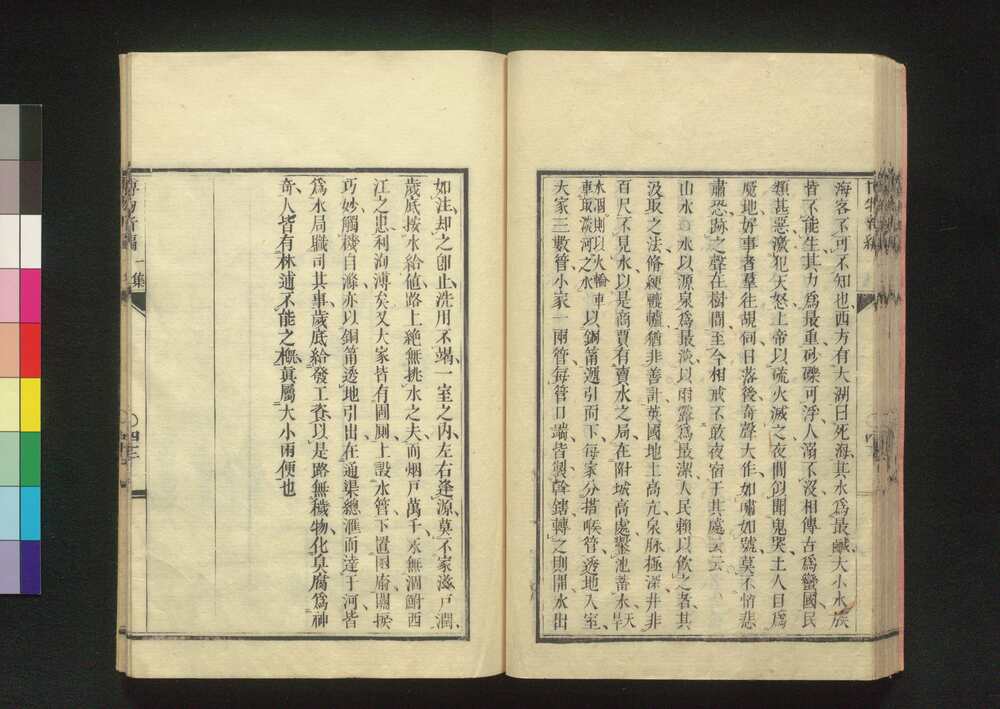 海客不可不知也西方有大湖曰死海其水爲最鹹大小水族
皆不能生其力爲最重砂礫可浮人溺不沒相傳古爲蠻國民
類甚惡激犯天怒上帝以硫火滅之夜間似聞鬼哭土人目爲
魔地好事者羣往覘伺日落後奇聲大作如嘯如號莫不悄悲
肅恐跡之聲在樹間至今相戒不敢夜宿于其處云云
山水 水以源泉爲最淡以雨露爲最潔人民賴以飲之者其
汲取之法脩綆轆轤猶非善計英國地土高亢泉脉極深井非
百尺不見水以是商賈有賣水之局在附城高處鑿池蓄水旱天
水涸則以火輪車取淡河之水以銅筩遞引而下每家分搭喉管透地入室
大家三數管小家一兩管每管口端皆製幹鎋轉之則開水出
如注却之卽止洗用不竭一室之內左右逢源莫不家滋戶潤
歲底按水給値路上絶無挑水之夫而烟戶萬千永無涸鮒西
江之患利洵溥矣又大家皆有圊厠上設水管下置圂廁關捩
巧妙觸機自滌亦以銅筩透地引出在通渠總滙而達于河皆
爲水局職司其事歲底給發工資以是路無穢物化臭腐爲神
奇人皆有林逋不能之槪眞屬大小兩便也
博物新編 一集